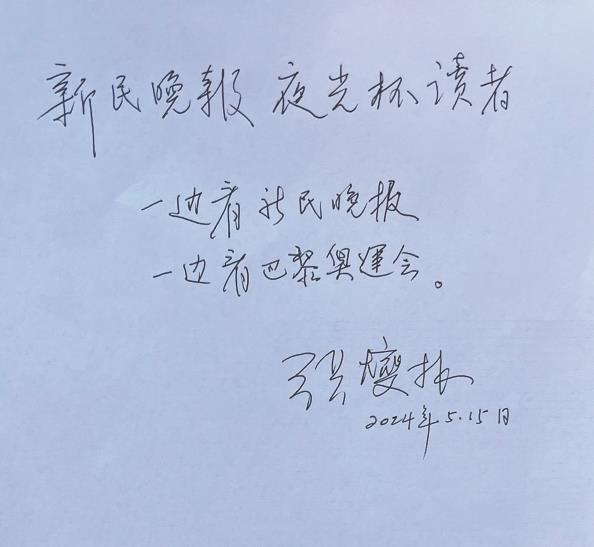 新民晚报 夜光杯读者
一边看新民晚报
一边看巴黎奥運会。
张燮林
2024年5.15日